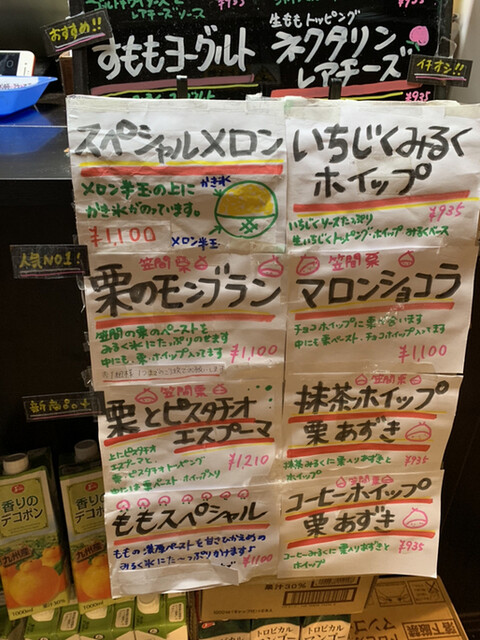 おすすめ!!
すももヨーグルト
レアチーズソース
¥935
生もも トッピング
ネクタリン
レアチーズ
¥935
イチオシ!!
スペシャルメロン
メロン半玉の上に
かき氷がのっています。
¥1,100
かき氷
メロン半玉
いちじくみるく
ホイップ
¥935
いちじくソースたっぷり
生いちじくトッピング ホイップ みるくベース
人気NO1!
笠間栗
栗のモンブラン
笠間の栗のペーストを
みるく氷にたっぷりのせます
中にも、栗ホイップ入ってます
¥1,100
笠間栗
マロンショコラ
チョコホイップに栗が合います
中にも栗ペースト、チョコホイップ入ってます
¥1,100
笠間栗
栗とピスタチオ
エスプーマ
上にピスタチオ
エスプーマと
栗、ピスタチオトッピング
栗ペースト ホイップ入り
¥1,210
笠間栗
抹茶ホイップ
栗あずき
抹茶みるくに栗入りあずきと
ホイップ
¥935
ももスペシャル
ももの濃厚ペーストを甘さひかえめの
みるく氷にた〜っぷりかけます♪
¥1100
笠間栗
コーヒーホイップ
栗あずき
コーヒーみるくに栗入りあずきと
ホイップ
¥935
香りの
デコポン
九州産
1000ml
香りの
デコポン
九州産
1000ml
果汁30%
トロピカル
マンゴー
トロピカル
トロピカル
マンゴ
落下厳禁